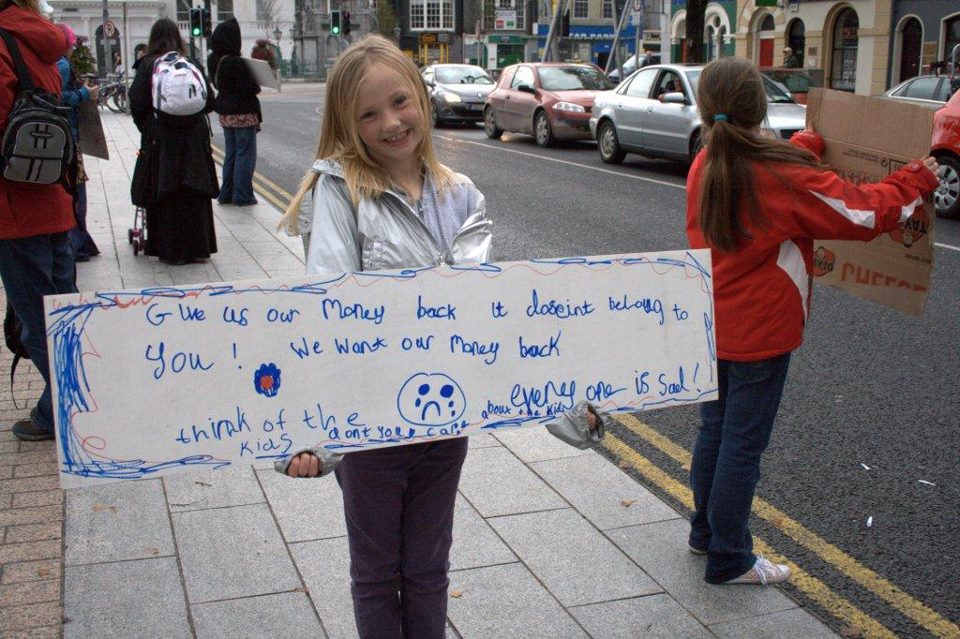 Give us our Money back it doseint belong to
You! We want our Money back
think of the kids dont you care about the kids every one is sad!
CHEESE